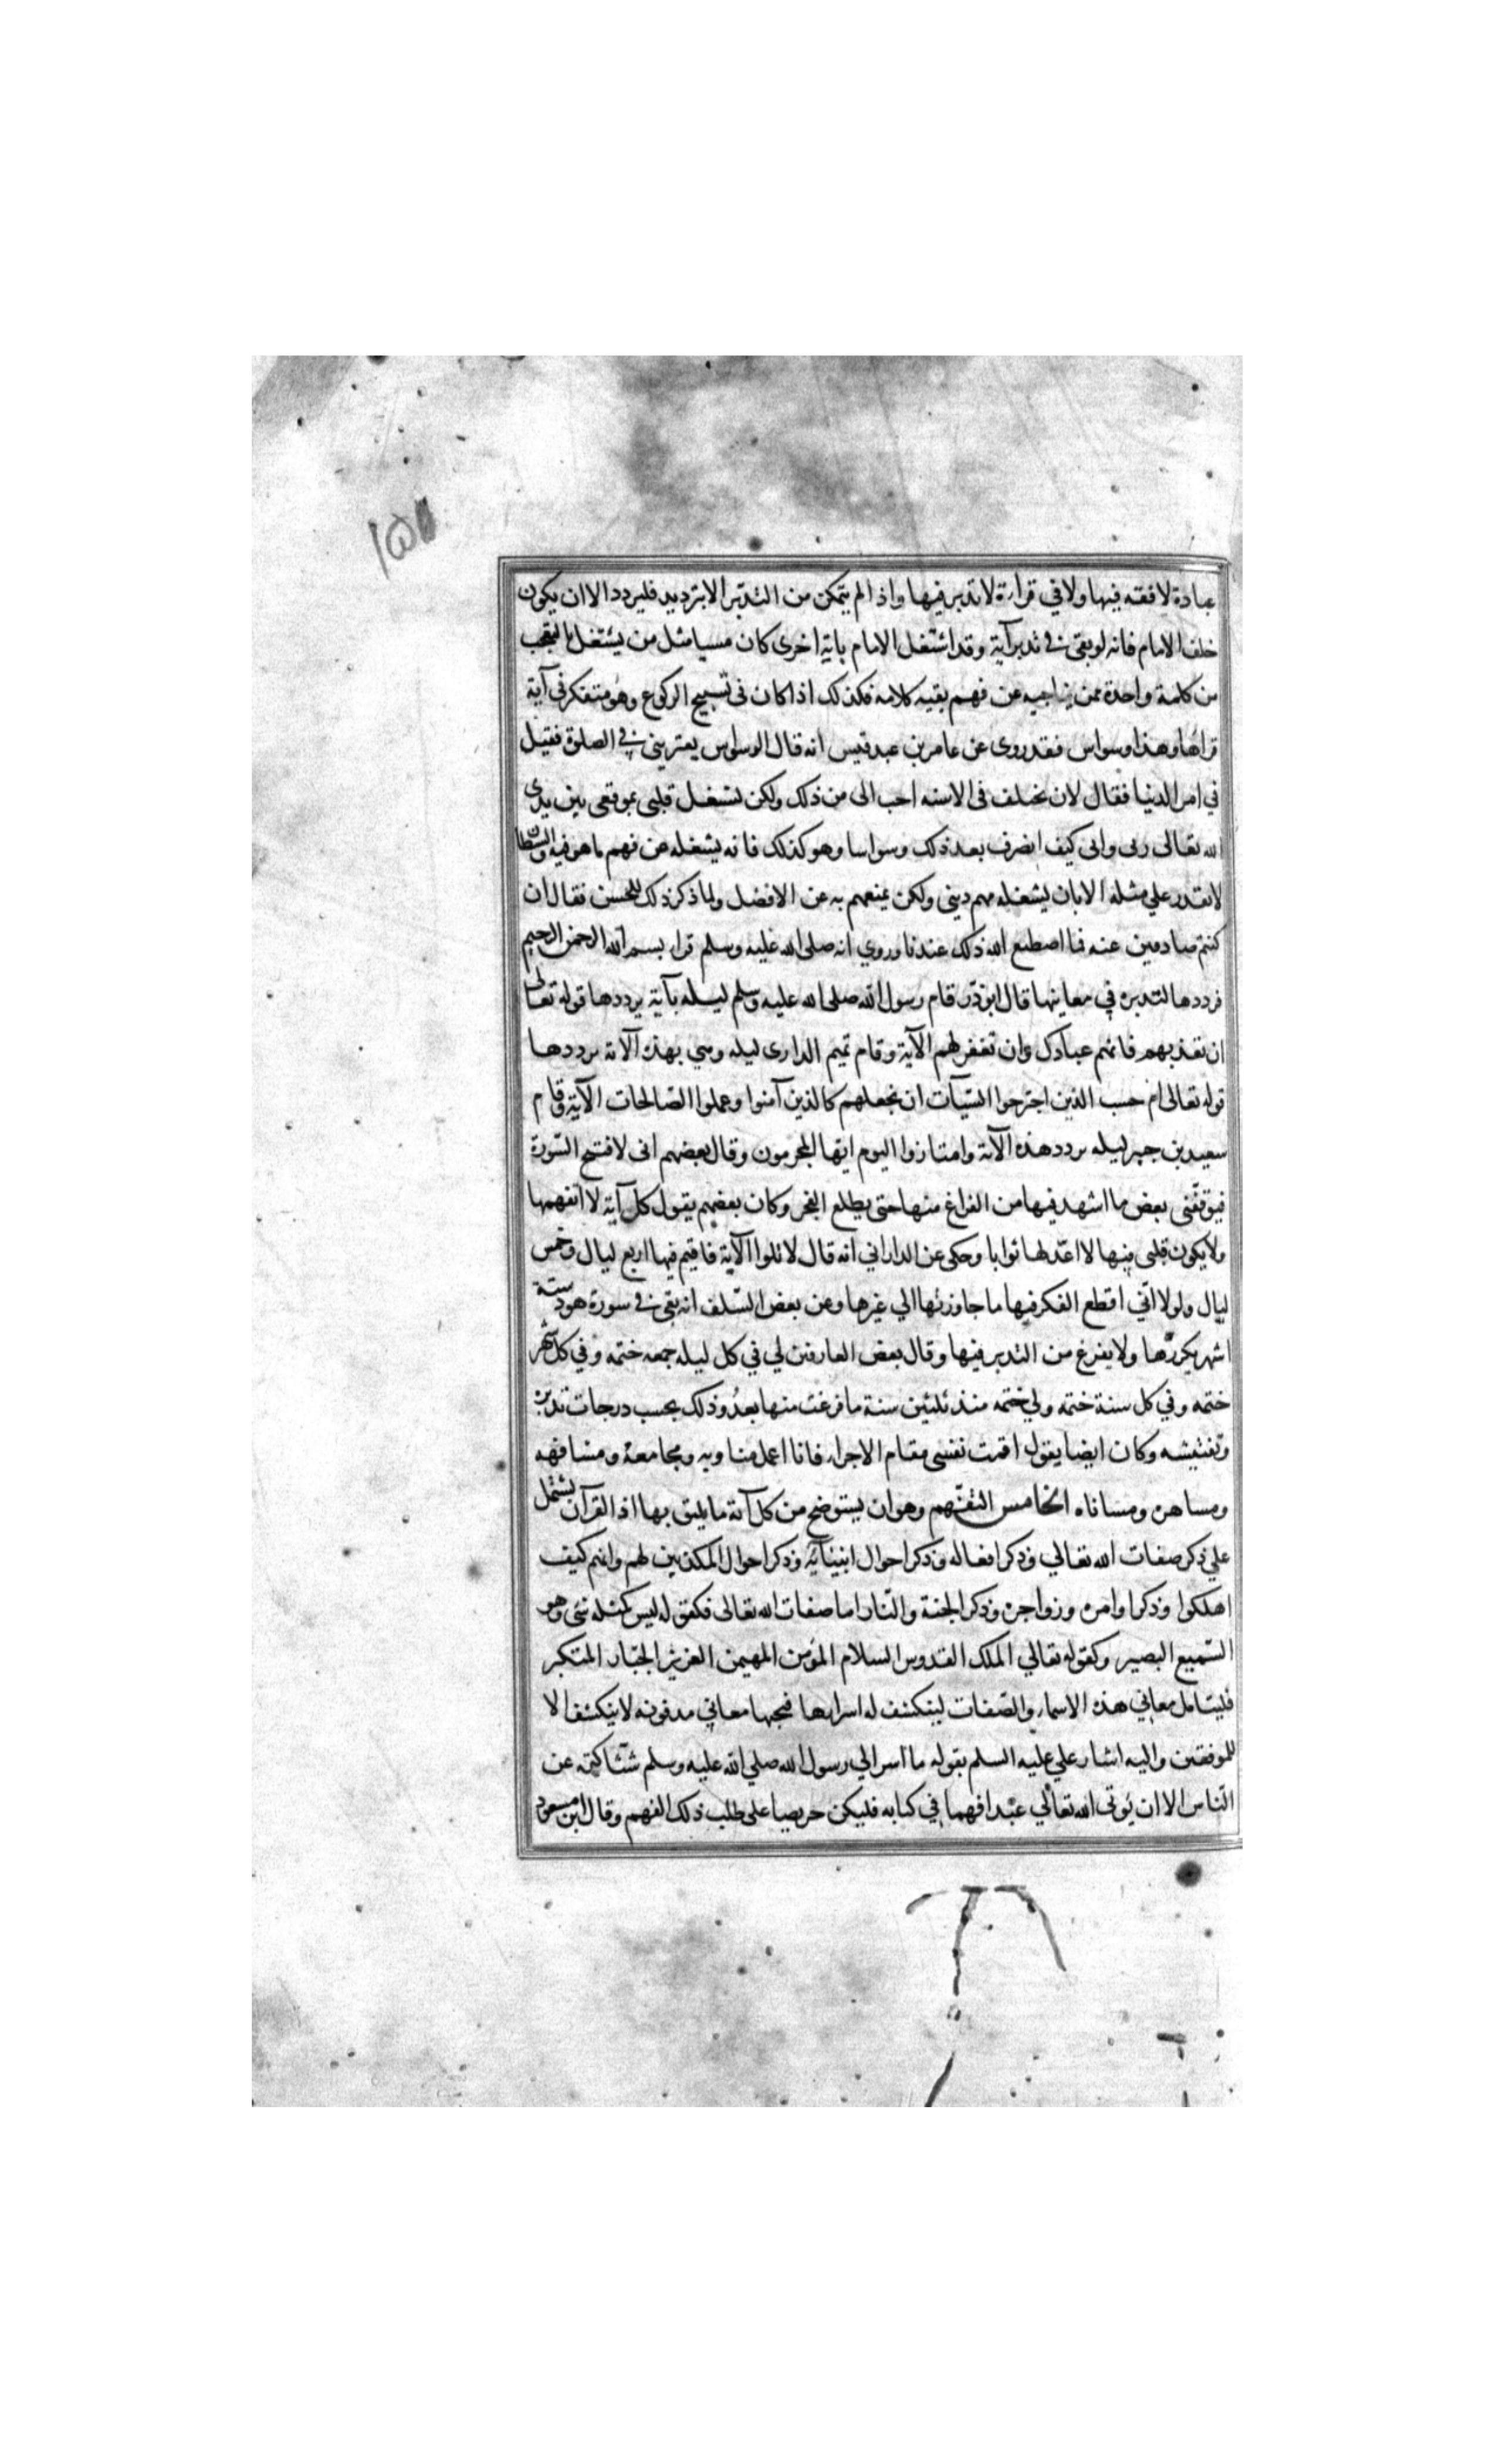 ١٥١
عبادة لا فقه فيها ولا في قراءة لا تدبر فيها واذا لم يتمكن من التدبر الا بترديد فليردد الا ان يكون
خلف الامام فانه لو بقي في تدبر آية وقد اشتغل الامام باية اخرى كان مسيا مثل من يشتغل بالتعجب
من كلمة واحدة ممن يناجيه عن فهم بقيه كلامه فكذلك اذا كان في تسبيح الركوع وهو متفكر في آية
قراها وهذا وسواس فقد روى عن عامر بن عبد قيس انه قال الوسواس يعتريني في الصلوة فقيل
في امر الدنيا فقال لان تختلف في الاسنه احب الى من ذلك ولكن تشغل قلبى بموقفى بين يدى
الله تعالى ربى وانى كيف انصرف بعد ذلك وسواسا وهو كذلك فانه يشغله عن فهم ما هو فيه والشيطان
لا يقدر علي مثله الا بان يشغله مهم دينى ولكن يمنعهم به عن الافضل ولما ذكر ذلك للحسن فقال ان
كنتم صادقين عنه فما اصطنع الله ذلك عندنا وروي انه صلى الله عليه وسلم قراء بسم الله الرحمن الرحيم
فرددها لتدبره في معاينها قال ابو ذر قام رسول الله صلى الله عليه وسلم ليله بآية يرددها قوله تعالى
ان تعذبهم فانهم عبادك وان تغفر لهم الآية وقام تميم الدارى ليله وهي بهذه الآية يرددها
قوله تعالى ام حسب الذين اجترحوا السيآت ان نجعلهم كالذين آمنوا وعملوا الصالحات الآية وقام
سعيد بن جبر ليله يردد هذه الآية وامتازوا اليوم ايها المجرمون وقال بعضهم انى لافتح السورة
فيوقفنى بعض ما اشهد فيها من الفراغ منها حتى يطلع الفجر وكان بعضهم يقول كل آية لا اتفهمها
ولا يكون قلبى فيها لا اعد لها ثوابا وحكى عن الداراني انه قال لاتلوا الآية فاقيم فيها اربع ليال وخمس
ليال ولولا انى اقطع الفكر فيها ما جاوزتها الي غيرها وعن بعض السلف انه بقى في سورة هود ستة
اشهر يكررها ولا يفرغ من التدبر فيها وقال بعض العارفين لي في كل ليله جمعه ختمه وفي كل شهر
ختمه وفي كل سنة ختمه ولي ختمه منذ ثلثين سنة ما فرغت منها بعد وذلك بحسب درجات تدبره
وتفتيشه وكان ايضا يقول اقمت نفسى مقام الاجراء فانا اعمل مياومه ومجامعة ومشافهه
ومساهره ومساناه الخامس التفهم وهو ان يستوضح من كل آية ما يليق بها اذ القرآن يشتمل
علي ذكر صفات الله تعالي وذكر افعاله وذكر احوال انبيائه وذكر احوال المكذبين لهم وانهم كيف
اهلكوا وذكر اوامره وزواجره وذكر الجنة والنار اما صفات الله تعالى فكقوله ليس كمثله شئ وهو
السميع البصير وكقوله تعالي الملك القدوس السلام المؤمن المهيمن العزيز الجبار المتكبر
فليتامل معاني هذه الاسماء والصفات لينكشف له اسرارها فتحتها معاني مدفونه لا ينكشف الا
للموفقين واليه اشار علي عليه السلم بقوله ما اسر الي رسول الله صلي الله عليه وسلم شيئا كتمه عن
الناس الا ان يؤتى الله تعالي عبدا فهما في كتابه فليكن حريصا على طلب ذلك الفهم وقال ابن مسعود